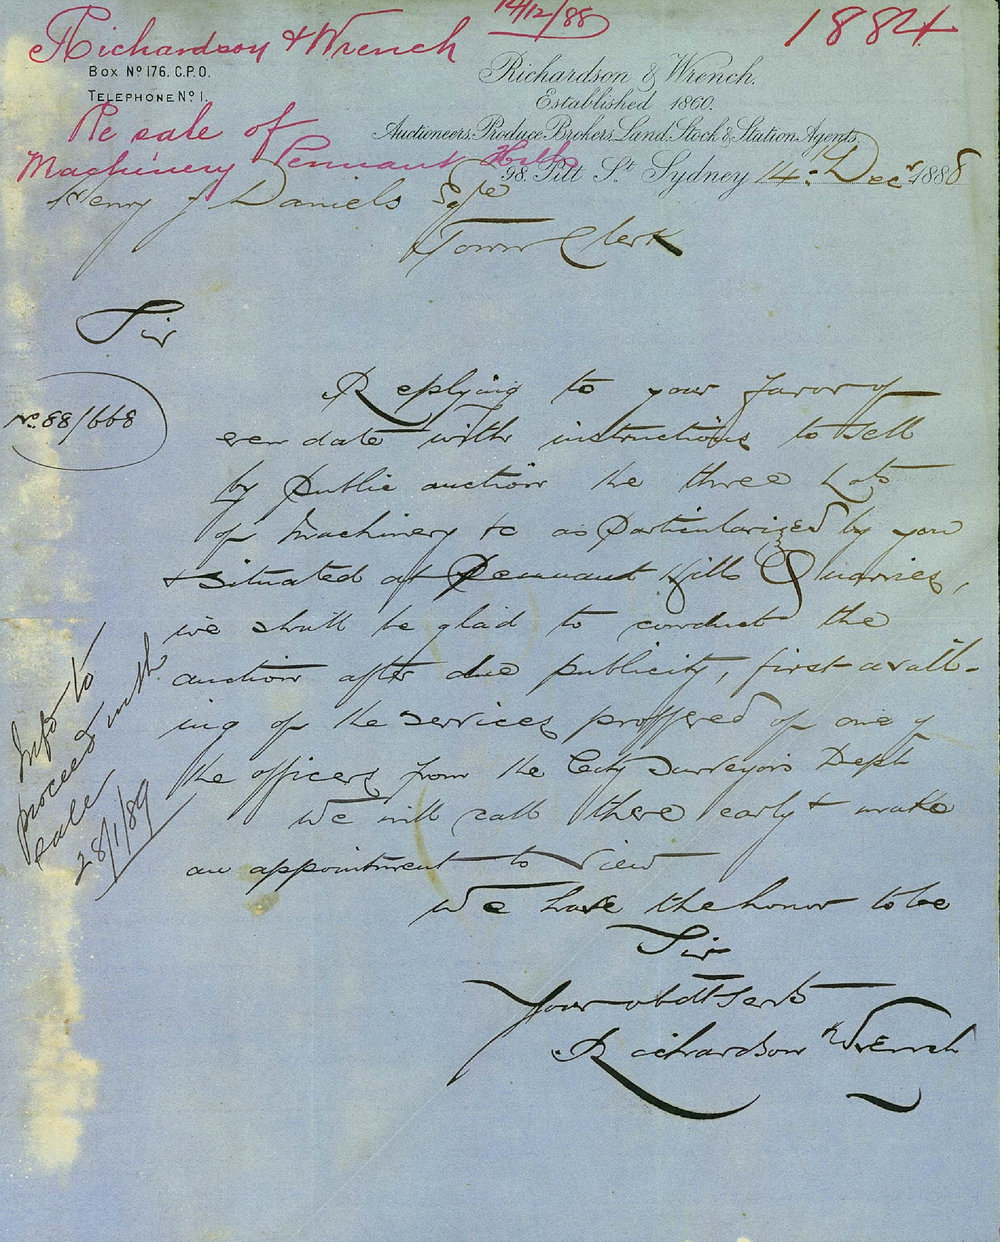 14/12/88
1884
Richardson & Wrench
Box No 176. G.P.O.
Telephone No 1.
Richardson & Wrench.
Established 1860.
Auctioneers, Produce Brokers, Land, Stock & Station Agents,
Re sale of
Machinery Pennant Hills
98. Pitt St Sydney 14: Decr 1888
Henry J Daniels Esqre
Town Clerk
Sir
No. 88/668
Replying to your favor of
even date with instructions to sell
by public auction the three Lots
of Machinery &c as particularized by you
& situated at Pennant Hills Quarries,
we shall be glad to conduct the
auction after due publicity, first avail-
ing of the services proffered of one of
the officers from the City Surveyors Dept
We will call there early & make
an appointment to view
Info to
proceed with
sale
28/1/89
We have the honor to be
Sir
Your obdt Servts
Richardson & Wrench